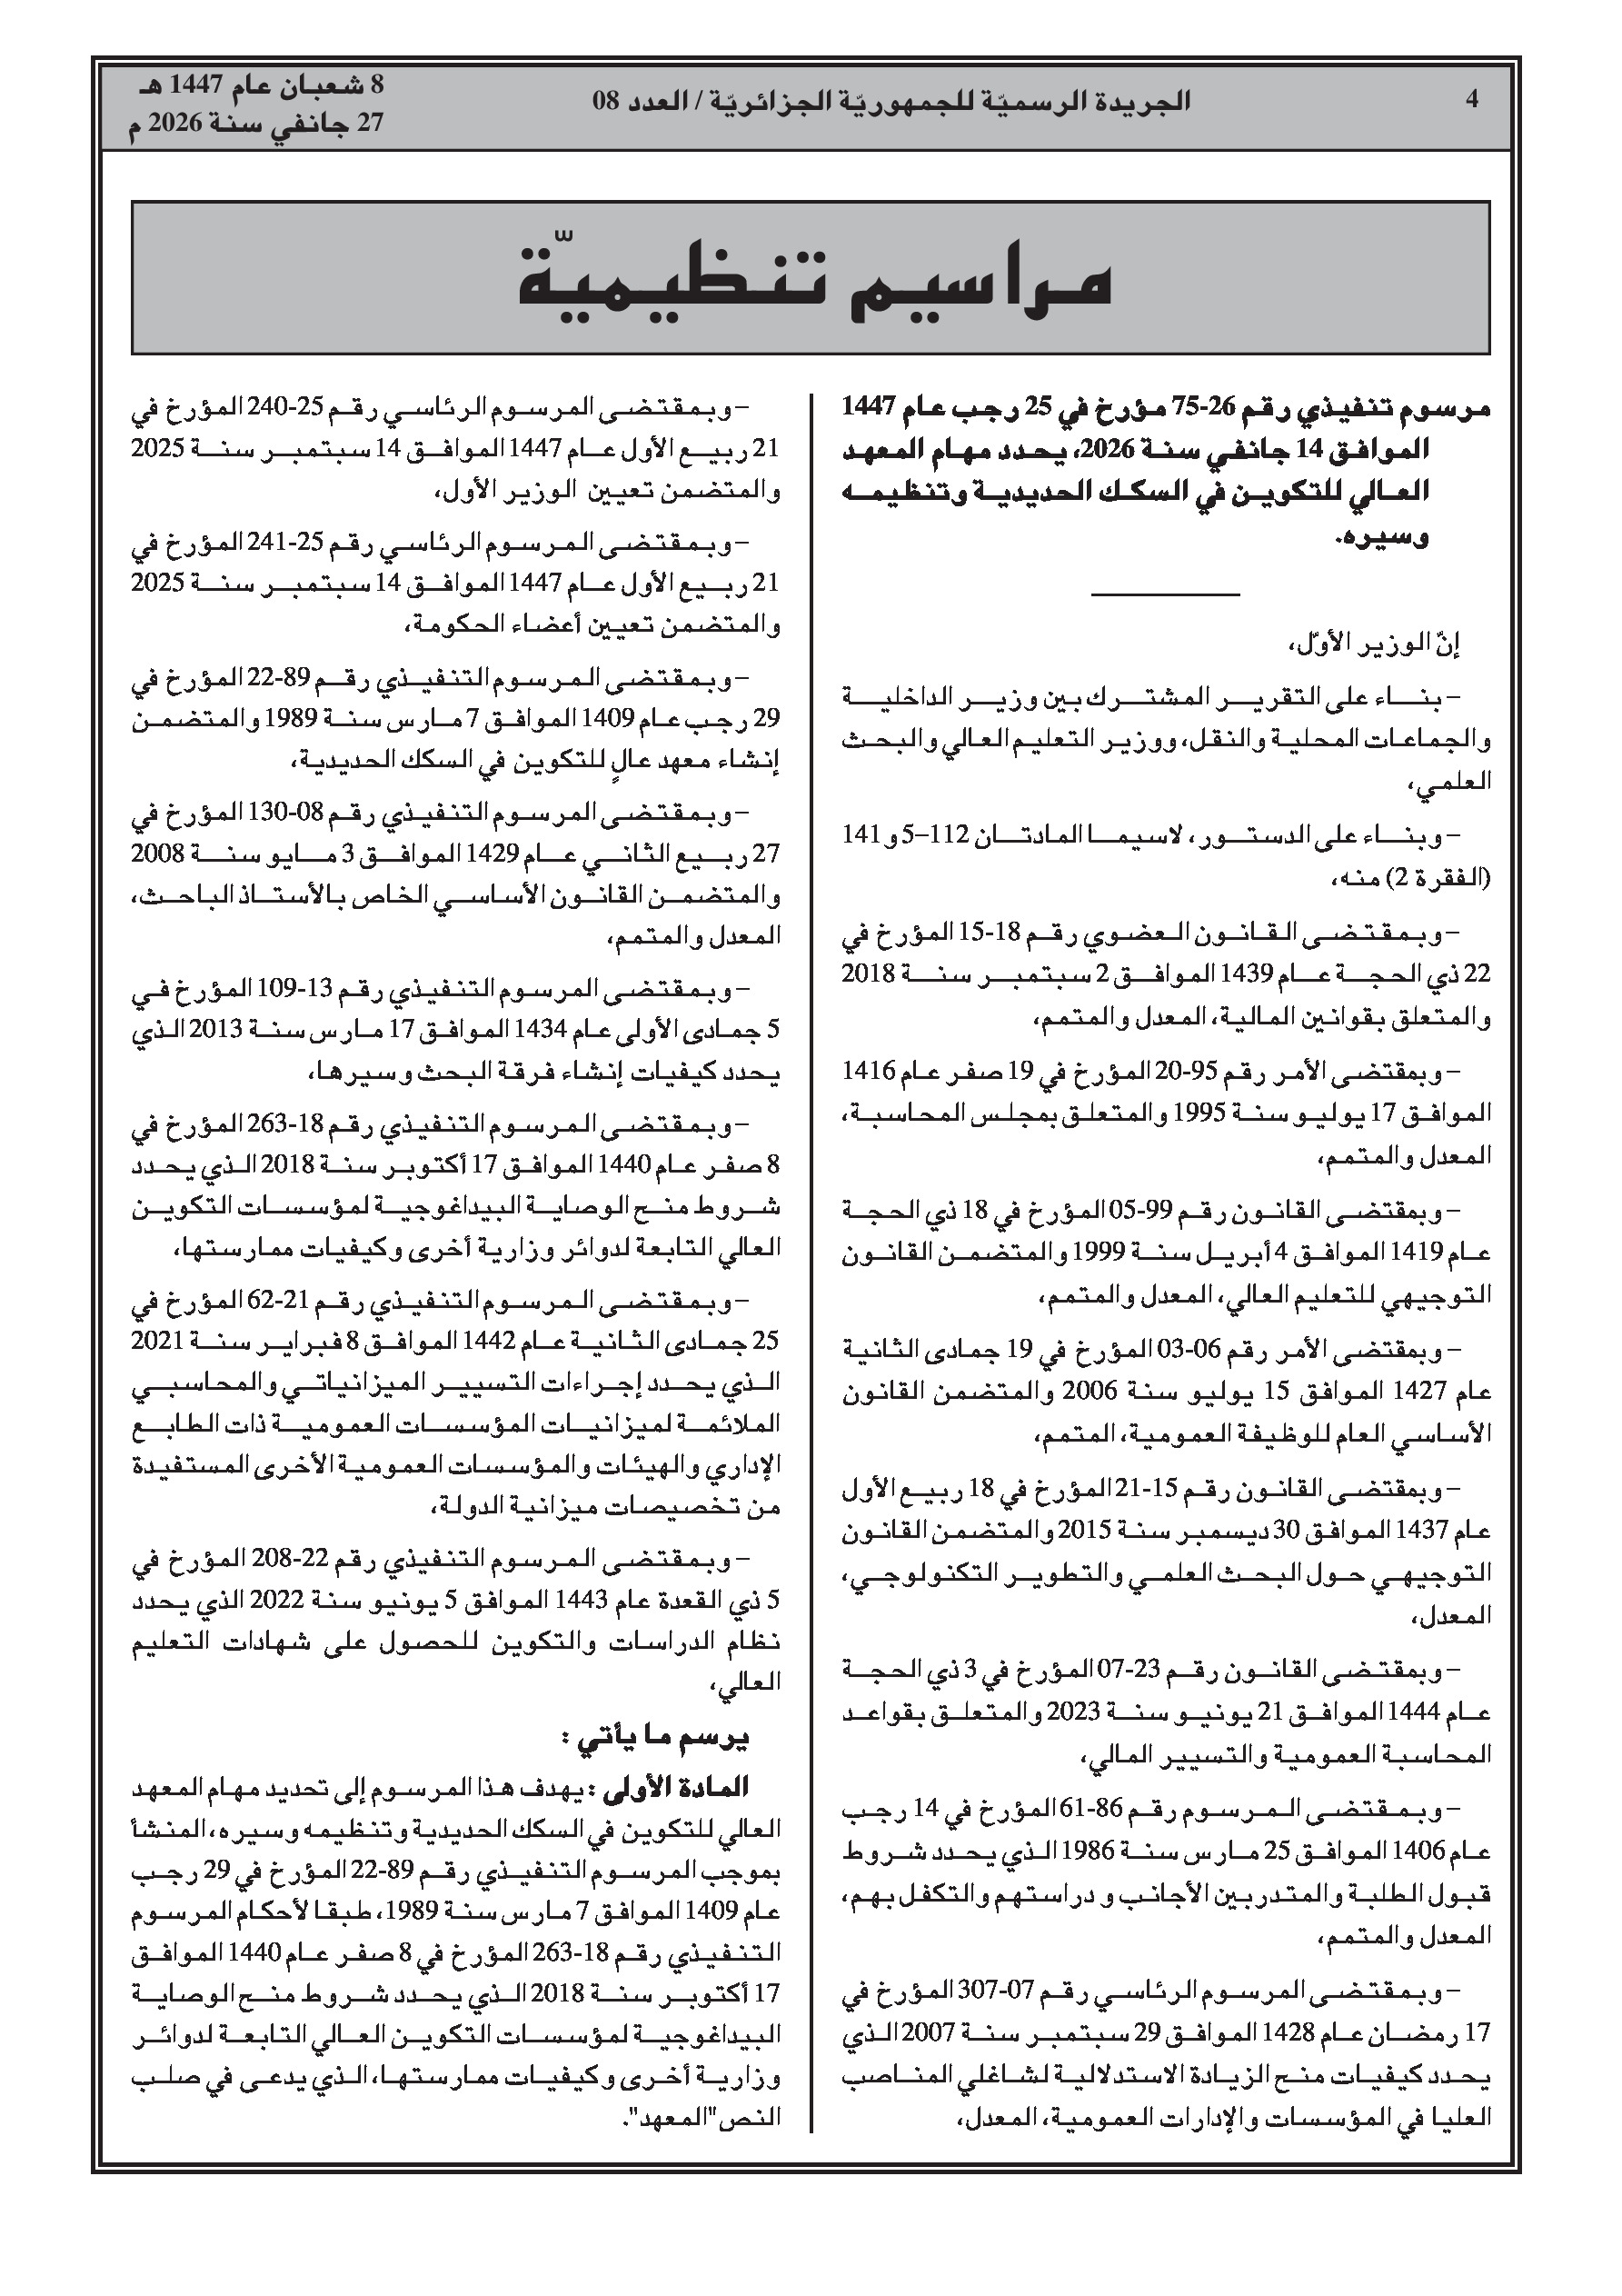 4
الجريدة الرسميّة للجمهوريّة الجزائريّة / العدد 08
8 شعبان عام 1447 هـ
27 جانفي سنة 2026 م
مراسيم تنظيميّة
مرسوم تنفيذي رقم 26-75 مؤرخ في 25 رجب عام 1447
الموافق 14 جانفي سنة 2026، يحدد مهام المعهد
العالي للتكوين في السكك الحديدية وتنظيمه
وسيره.
إنّ الوزير الأوّل،
– بناء على التقرير المشترك بين وزير الداخلية
والجماعات المحلية والنقل، ووزير التعليم العالي والبحث
العلمي،
– وبناء على الدستور، لاسيما المادتان 112–5 و 141
(الفقرة 2) منه،
– وبمقتضى القانون العضوي رقم 18-15 المؤرخ في
22 ذي الحجة عام 1439 الموافق 2 سبتمبر سنة 2018
والمتعلق بقوانين المالية، المعدل والمتمم،
– وبمقتضى الأمر رقم 95-20 المؤرخ في 19 صفر عام 1416
الموافق 17 يوليو سنة 1995 والمتعلق بمجلس المحاسبة،
المعدل والمتمم،
– وبمقتضى القانون رقم 99-05 المؤرخ في 18 ذي الحجة
عام 1419 الموافق 4 أبريل سنة 1999 والمتضمن القانون
التوجيهي للتعليم العالي، المعدل والمتمم،
– وبمقتضى الأمر رقم 06-03 المؤرخ في 19 جمادى الثانية
عام 1427 الموافق 15 يوليو سنة 2006 والمتضمن القانون
الأساسي العام للوظيفة العمومية، المتمم،
– وبمقتضى القانون رقم 15-21 المؤرخ في 18 ربيع الأول
عام 1437 الموافق 30 ديسمبر سنة 2015 والمتضمن القانون
التوجيهي حول البحث العلمي والتطوير التكنولوجي،
المعدل،
– وبمقتضى القانون رقم 23-07 المؤرخ في 3 ذي الحجة
عام 1444 الموافق 21 يونيو سنة 2023 والمتعلق بقواعد
المحاسبة العمومية والتسيير المالي،
– وبمقتضى المرسوم رقم 86-61 المؤرخ في 14 رجب
عام 1406 الموافق 25 مارس سنة 1986 الذي يحدد شروط
قبول الطلبة والمتدربين الأجانب و دراستهم والتكفل بهم،
المعدل والمتمم،
– وبمقتضى المرسوم الرئاسي رقم 07-307 المؤرخ في
17 رمضان عام 1428 الموافق 29 سبتمبر سنة 2007 الذي
يحدد كيفيات منح الزيادة الاستدلالية لشاغلي المناصب
العليا في المؤسسات والإدارات العمومية، المعدل،
– وبمقتضى المرسوم الرئاسي رقم 25-240 المؤرخ في
21 ربيع الأول عام 1447 الموافق 14 سبتمبر سنة 2025
والمتضمن تعيين الوزير الأول،
– وبمقتضى المرسوم الرئاسي رقم 25-241 المؤرخ في
21 ربيع الأول عام 1447 الموافق 14 سبتمبر سنة 2025
والمتضمن تعيين أعضاء الحكومة،
– وبمقتضى المرسوم التنفيذي رقم 89-22 المؤرخ في
29 رجب عام 1409 الموافق 7 مارس سنة 1989 والمتضمن
إنشاء معهد عالٍ للتكوين في السكك الحديدية،
– وبمقتضى المرسوم التنفيذي رقم 08-130 المؤرخ في
27 ربيع الثاني عام 1429 الموافق 3 مايو سنة 2008
والمتضمن القانون الأساسي الخاص بالأستاذ الباحث،
المعدل والمتمم،
– وبمقتضى المرسوم التنفيذي رقم 13-109 المؤرخ في
5 جمادى الأولى عام 1434 الموافق 17 مارس سنة 2013 الذي
يحدد كيفيات إنشاء فرقة البحث وسيرها،
– وبمقتضى المرسوم التنفيذي رقم 18-263 المؤرخ في
8 صفر عام 1440 الموافق 17 أكتوبر سنة 2018 الذي يحدد
شروط منح الوصاية البيداغوجية لمؤسسات التكوين
العالي التابعة لدوائر وزارية أخرى وكيفيات ممارستها،
– وبمقتضى المرسوم التنفيذي رقم 21-62 المؤرخ في
25 جمادى الثانية عام 1442 الموافق 8 فبراير سنة 2021
الذي يحدد إجراءات التسيير الميزانياتي والمحاسبي
الملائمة لميزانيات المؤسسات العمومية ذات الطابع
الإداري والهيئات والمؤسسات العمومية الأخرى المستفيدة
من تخصيصات ميزانية الدولة،
– وبمقتضى المرسوم التنفيذي رقم 22-208 المؤرخ في
5 ذي القعدة عام 1443 الموافق 5 يونيو سنة 2022 الذي يحدد
نظام الدراسات والتكوين للحصول على شهادات التعليم
العالي،
يرسم ما يأتي :
المادة الأولى : يهدف هذا المرسوم إلى تحديد مهام المعهد
العالي للتكوين في السكك الحديدية وتنظيمه وسيره، المنشأ
بموجب المرسوم التنفيذي رقم 89-22 المؤرخ في 29 رجب
عام 1409 الموافق 7 مارس سنة 1989، طبقا لأحكام المرسوم
التنفيذي رقم 18-263 المؤرخ في 8 صفر عام 1440 الموافق
17 أكتوبر سنة 2018 الذي يحدد شروط منح الوصاية
البيداغوجية لمؤسسات التكوين العالي التابعة لدوائر
وزارية أخرى وكيفيات ممارستها، الذي يدعى في صلب
النص "المعهد".